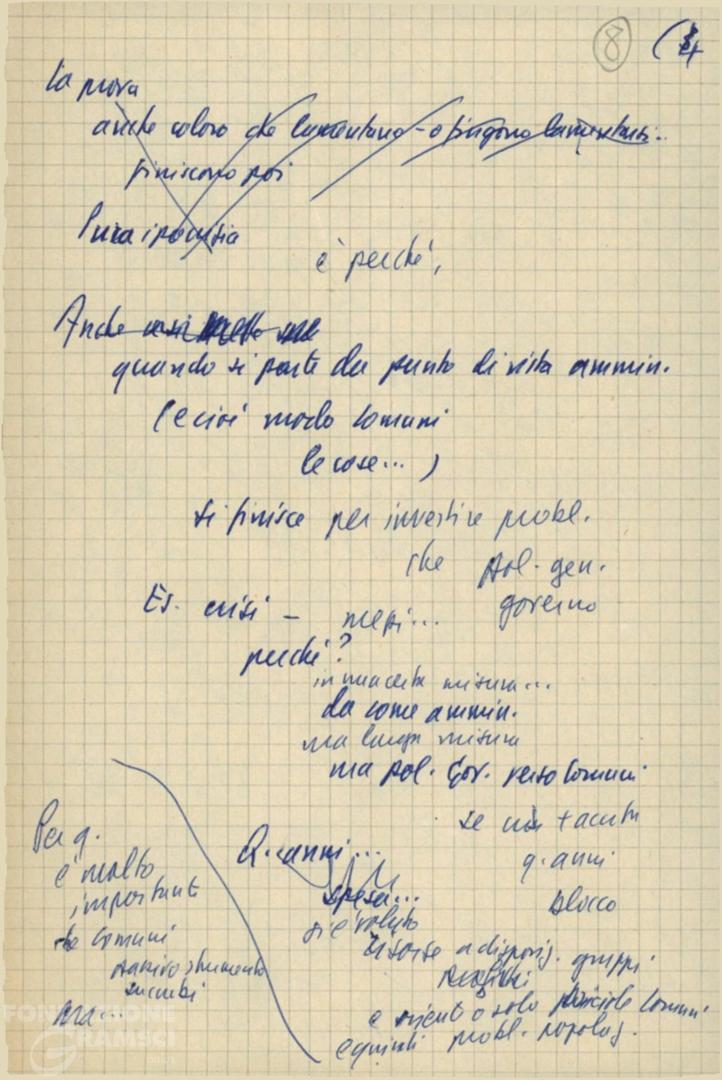 8 (4
La prova
anche coloro che lamentano - o fingono lamentarsi..
finiscono poi
Pura ipocrisia
è perché,
Anche così
quando si parte da punto di vista ammin.
(e cioè modo Comuni
le cose... )
si finisce per investire probl.
che pol. gen.
governo
Es. crisi - mezzi...
perché?
in una certa misura...
da come ammin.
ma larga misura
ma pol. Gov. verso Comuni
se crisi + acuta
Per q.
è molto
importante
che Comuni
siano strumento
ma...
Q. anni...
q. anni
spesa...
blocco
si è voluto
risorse a disposiz. gruppi
e solo Comuni
e quindi probl. popolaz.
FONDAZIONE
GRAMSCI